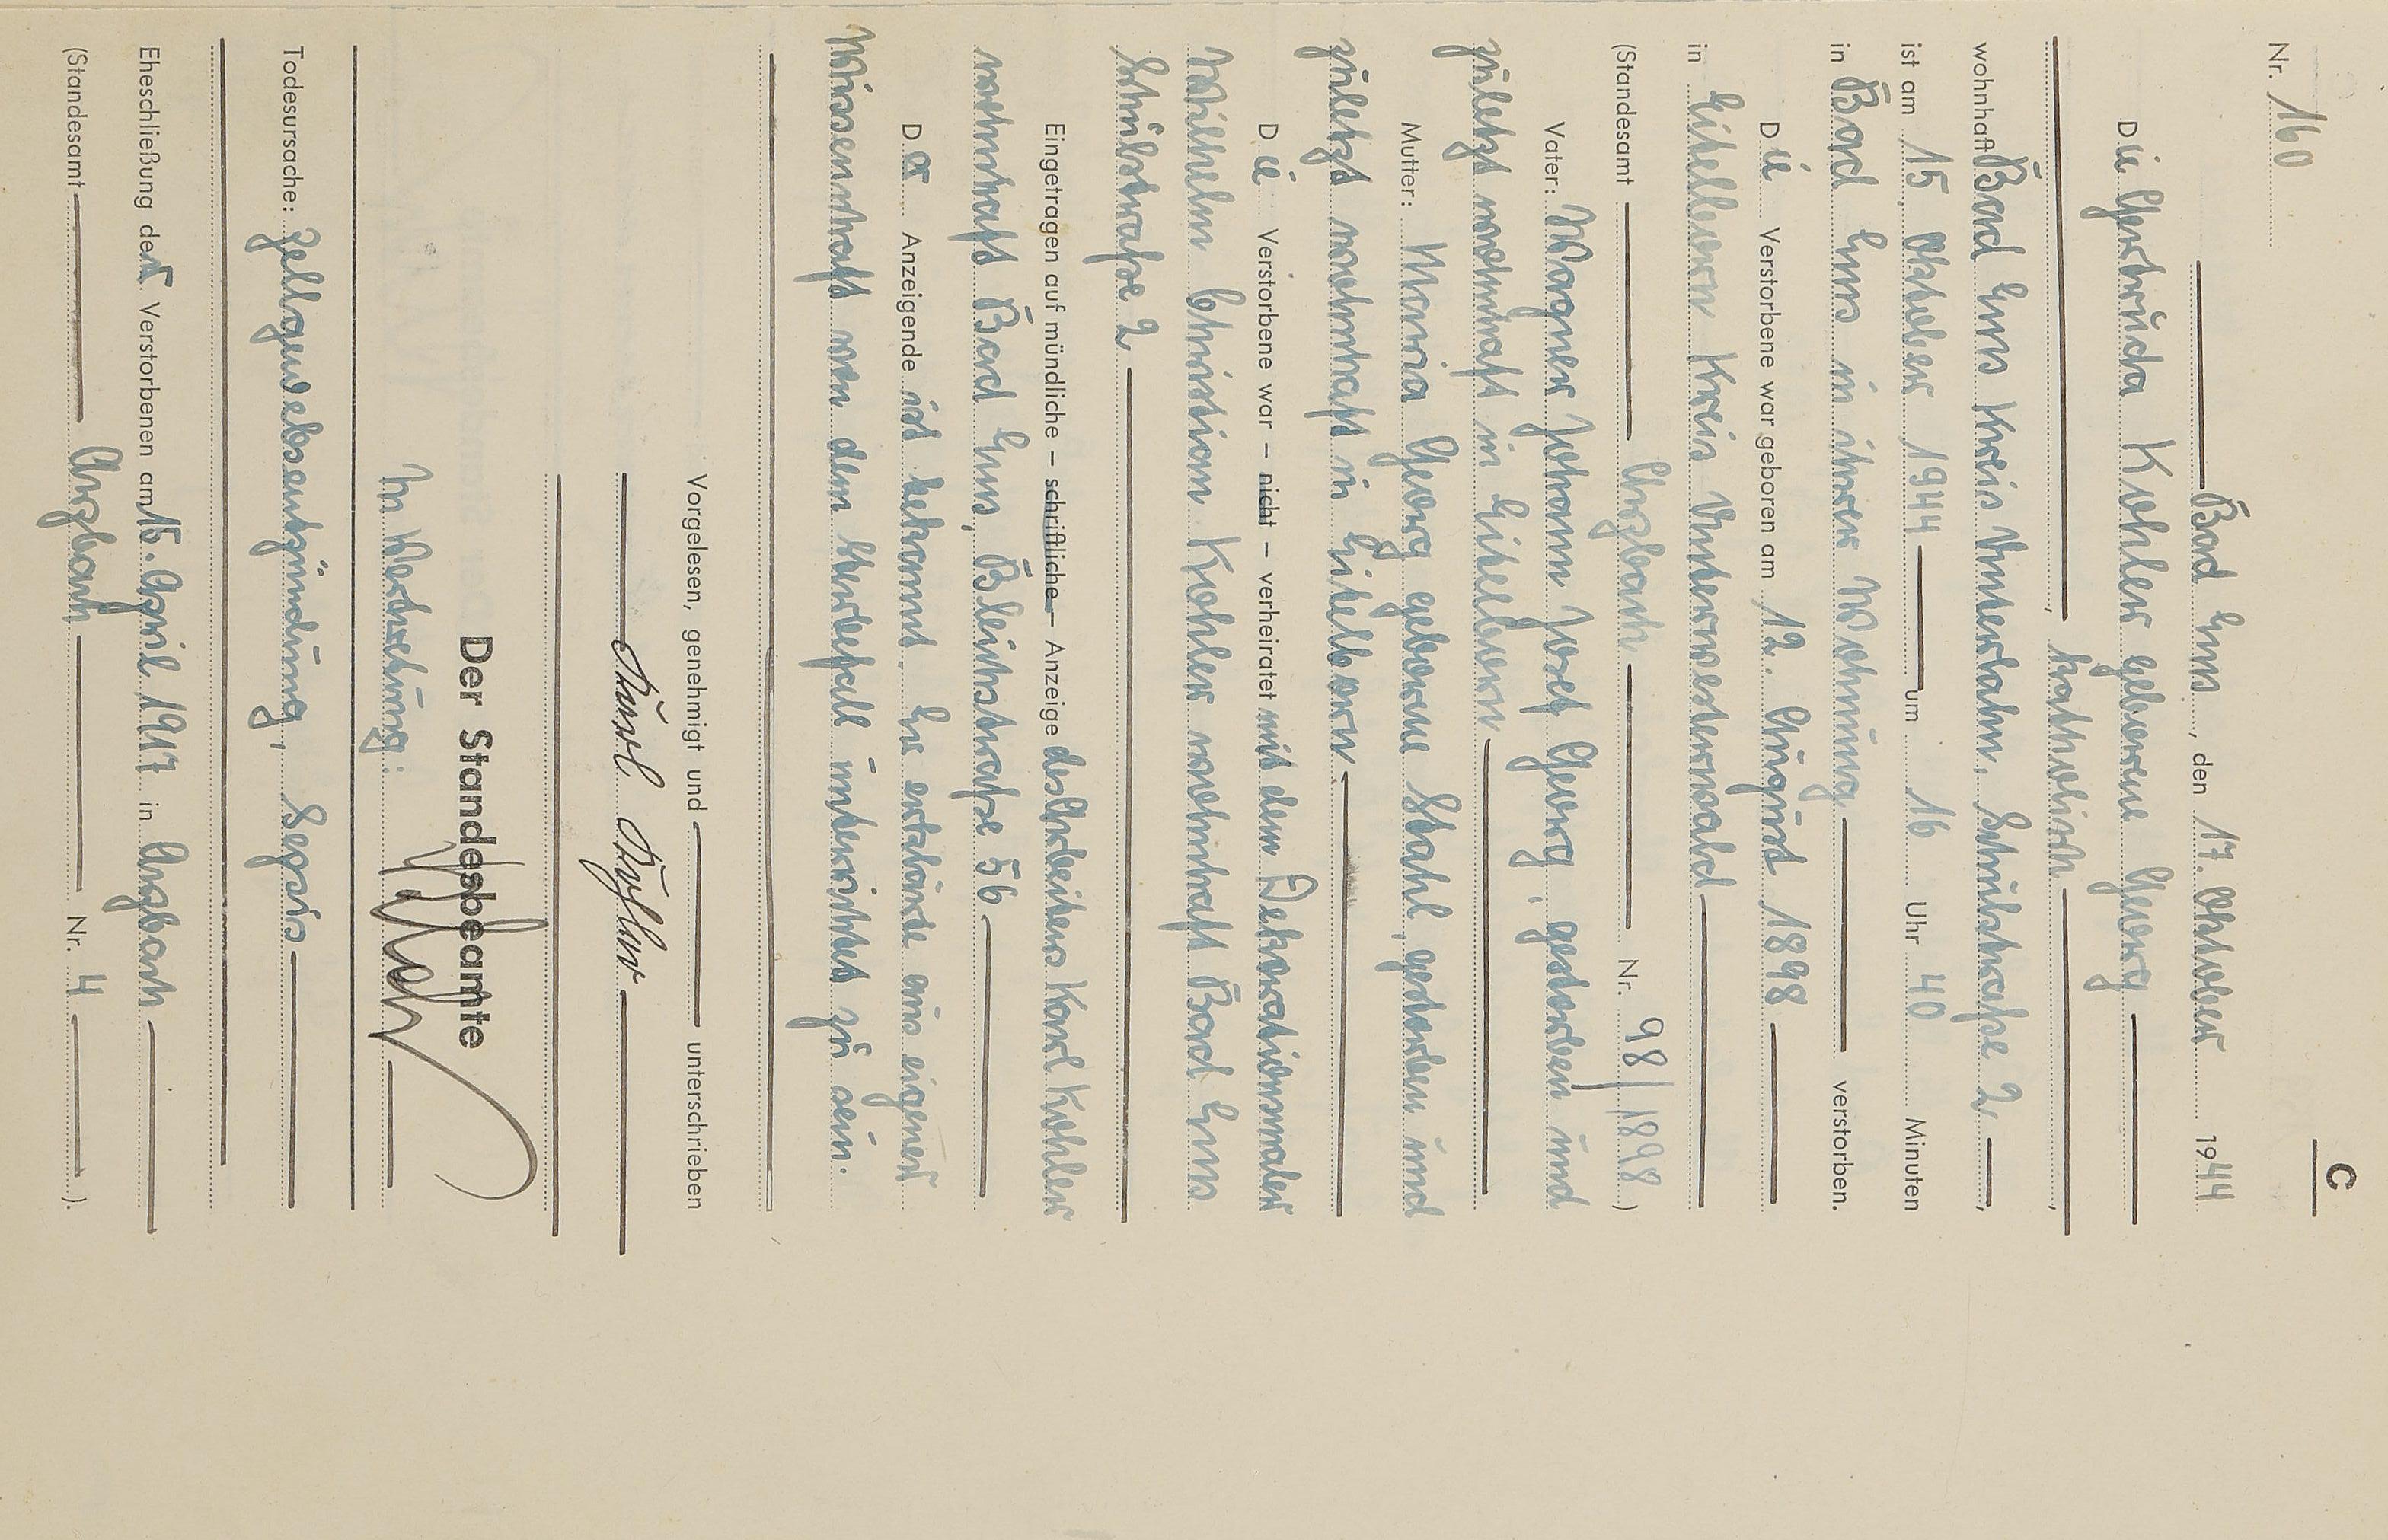 C
Nr. 160
Bad Ems, den 17. Oktober 1944
Die Gertruda Kohler geborene Georg
, katholisch,
wohnhaft Bad Ems Kreis Unterlahn, Schulstraße 2,
ist am 15. Oktober 1944 um 16 Uhr 40 Minuten
in Bad Ems in ihrer Wohnung verstorben.
Die Verstorbene war geboren am 12. August 1898
in Eitelborn Kreis Unterwesterwald
(Standesamt Arzbach Nr. 98/1898)
Vater: Wagner Johann Josef Georg, gestorben und
zuletzt wohnhaft in Eitelborn
Mutter: Maria Georg geborene Stahl, gestorben und
zuletzt wohnhaft in Eitelborn
Die Verstorbene war – nicht – verheiratet mit dem Dekorationsmaler
Wilhelm Christian Kohler wohnhaft Bad Ems
Schulstraße 2
Eingetragen auf mündliche – schriftliche – Anzeige des Arbeiters Karl Kohler
wohnhaft Bad Ems, Bleichstraße 56
Der Anzeigende ist bekannt. Er erklärte aus eigener
Wissenschaft von dem Sterbefall unterrichtet zu sein.
Vorgelesen, genehmigt und unterschrieben
Karl Kohler
Der Standesbeamte
In Vertretung:
Todesursache: Zellgewebsentzündung, Sepsis
Eheschließung der Verstorbenen am 15. April 1917 in Arzbach
(Standesamt Arzbach Nr. 4).